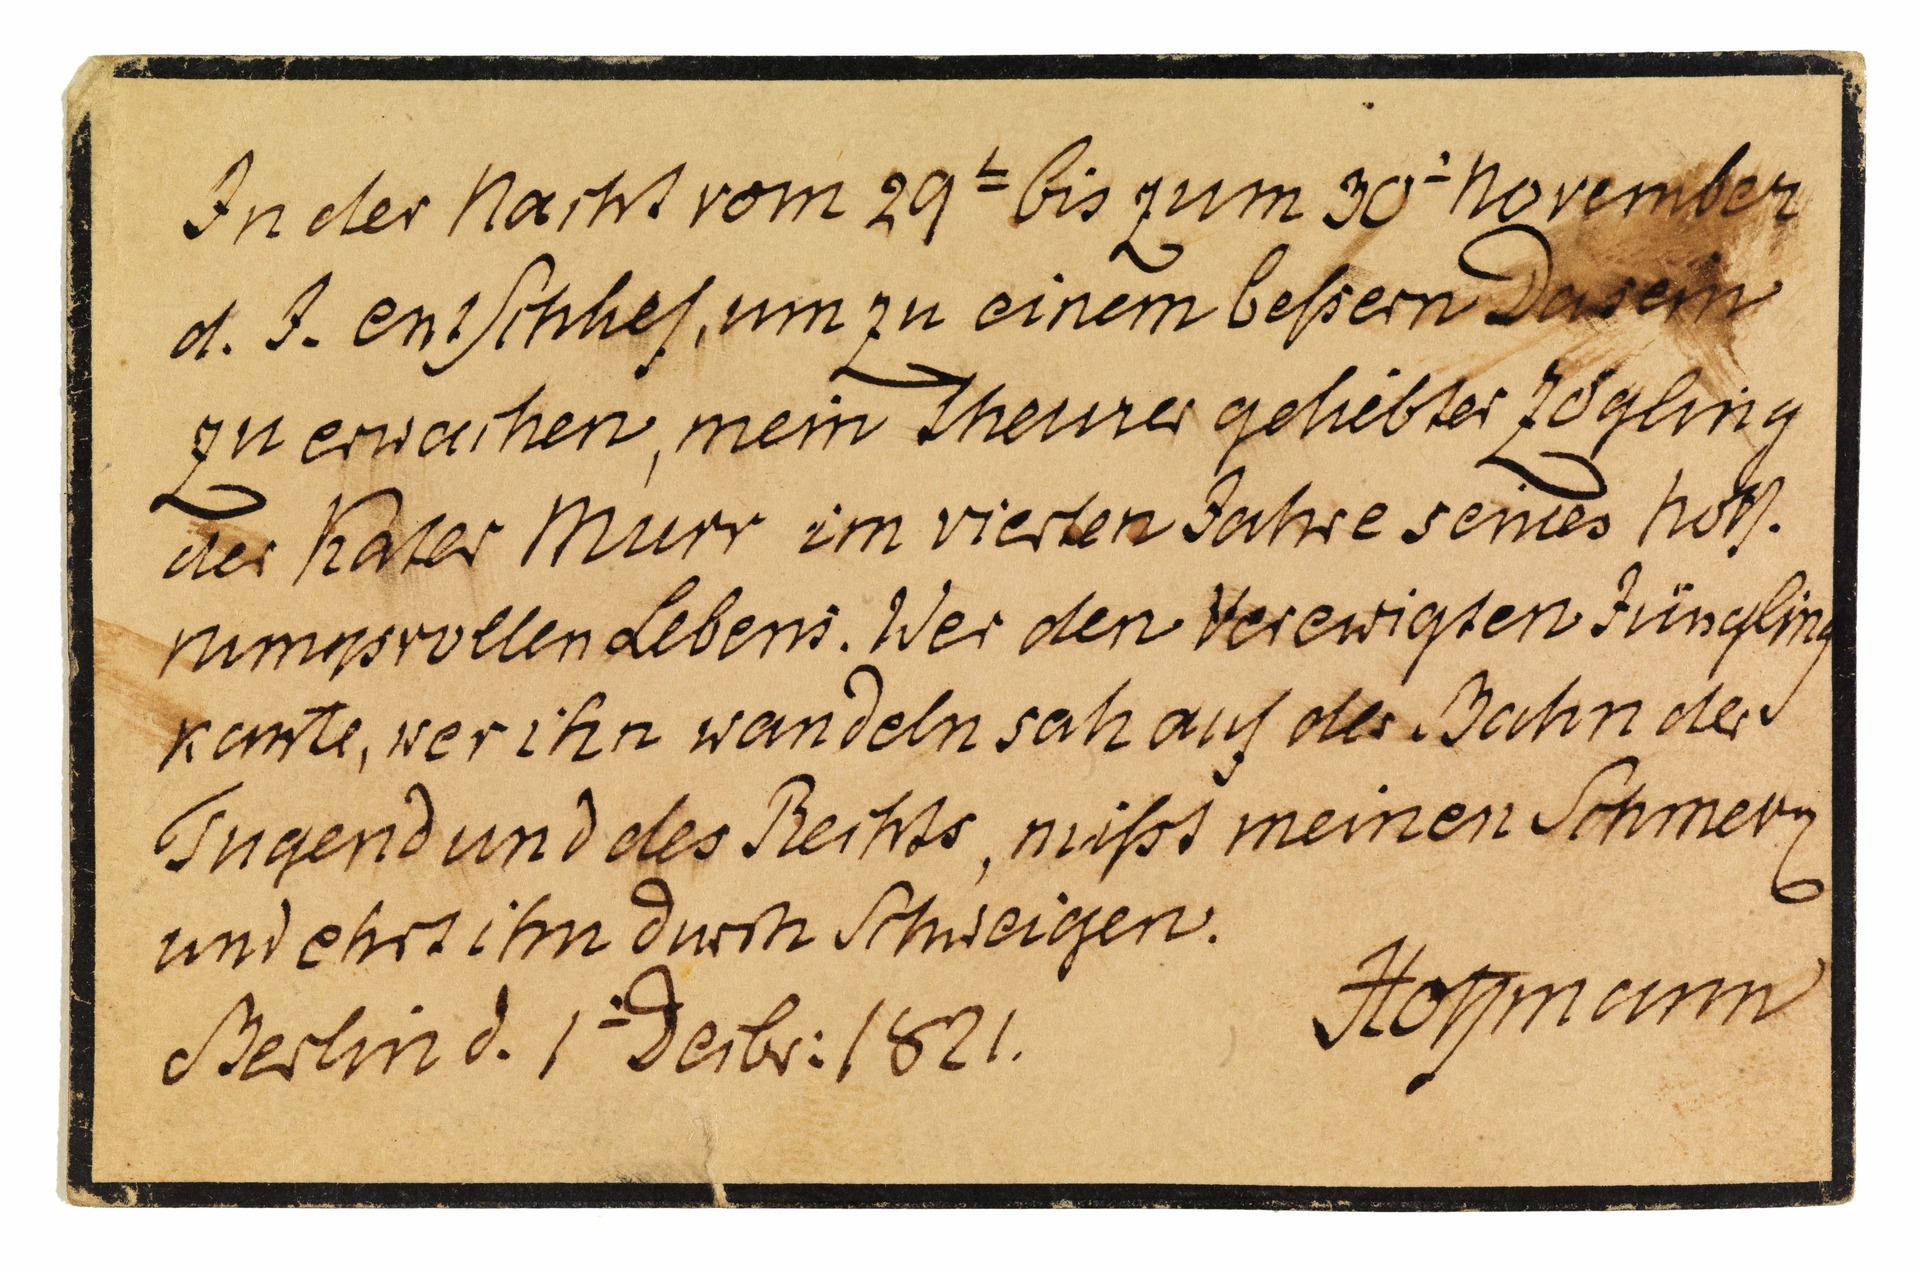 In der Nacht vom 29t bis zum 30. November
d. J. entschlief, um zu einem beßern Dasein
zu erwachen, mein theurer geliebter Zögling
der Kater Murr im vierten Jahre seines hoff-
nungsvollen Lebens. Wer den verewigten Jüngling
kannte, wer ihn wandeln sah auf der Bahn der
Tugend und des Rechts, mißt meinen Schmerz
und ehrt ihn durch Schweigen.
Berlin d. 1. Decbr: 1821.
Hoffmann